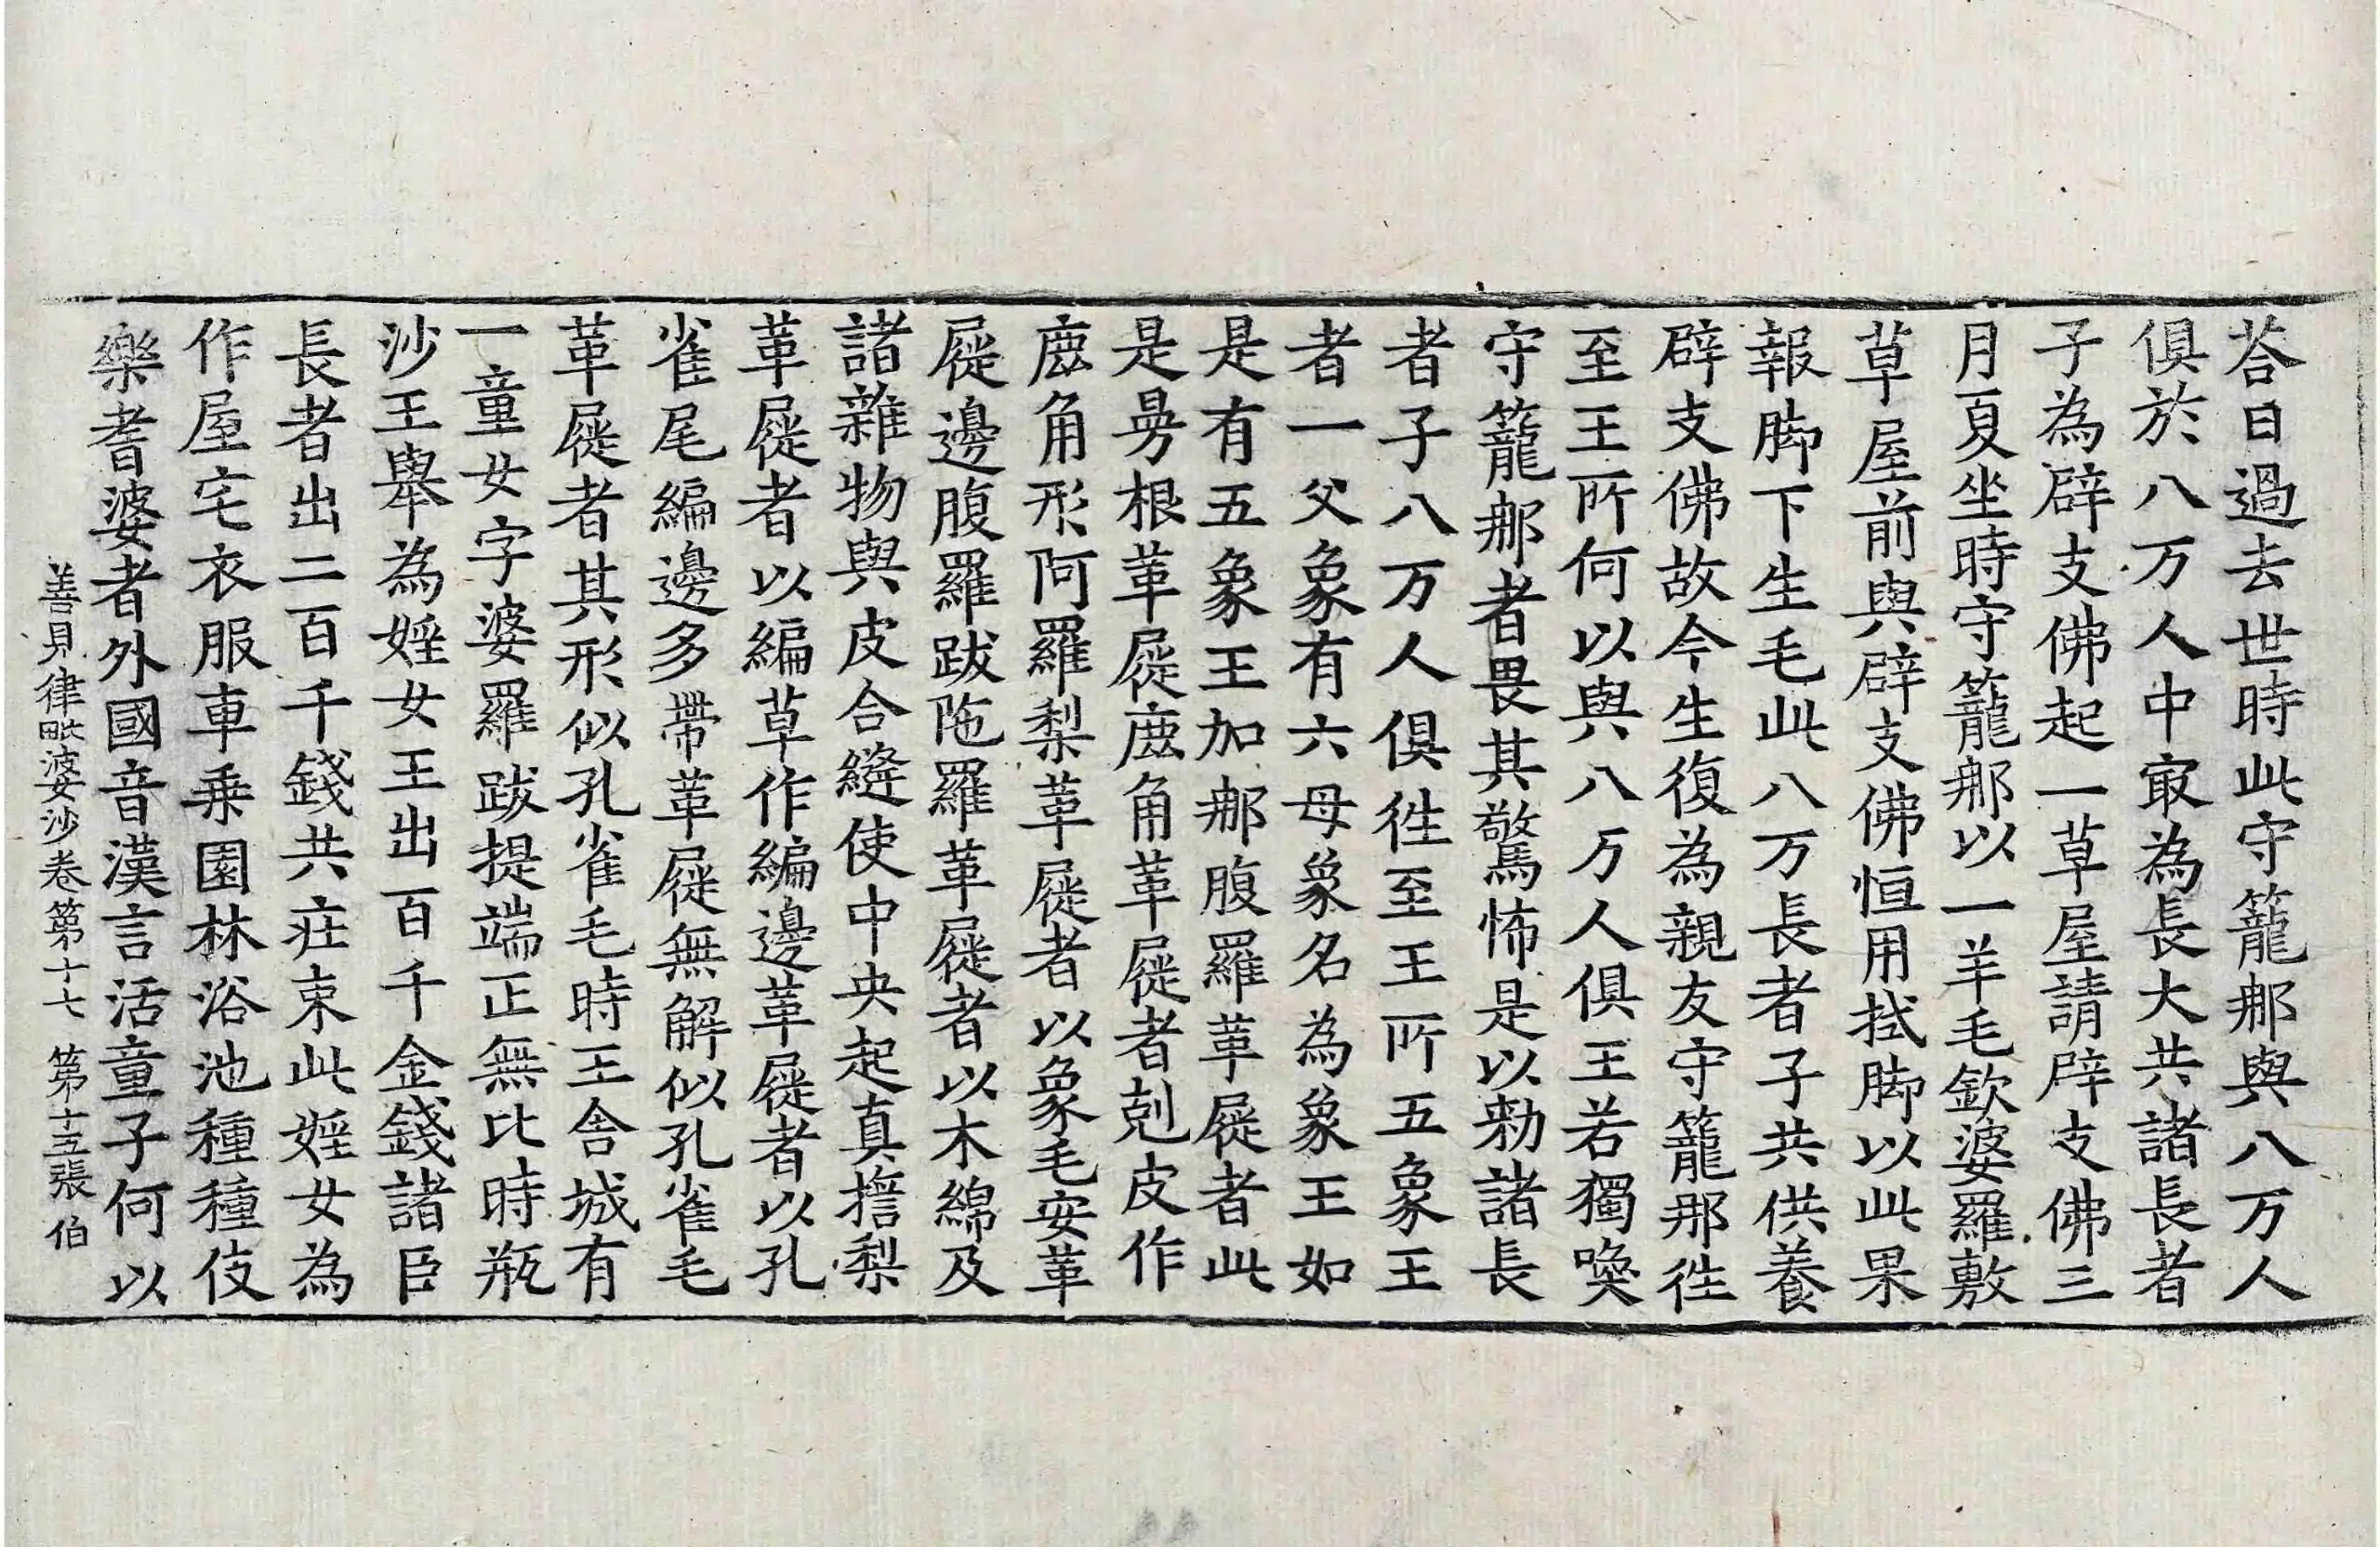 荅曰過去世時此守籠那與八万人
俱於八万人中㝡為長大共諸長者
子為辟支佛起一草屋請辟支佛三
月夏坐時守籠那以一羊毛欽婆羅敷
草屋前與辟支佛恒用拭脚以此果
報脚下生毛此八万長者子共供養
辟支佛故今生復為親友守籠那徃
至王所何以與八万人俱王若獨喚
守籠那者畏其驚怖是以勑諸長
者子八万人俱徃至王所五象王
者一父象有六母象名為象王如
是有五象王加那腹羅革屣者此
是昜根革屣䴢角革屣者剋皮作
䴢角形阿羅梨革屣者以象毛安革
屣邊腹羅跋陁羅革屣者以木綿及
諸雜物與皮合縫使中央起真擔梨
革屣者以編草作編邊革屣者以孔
雀尾編邊多帶革屣無解似孔雀毛
革屣者其形似孔雀毛時王舍城有
一童女字婆羅跋提端正無比時瓶
沙王舉為婬女王出百千金錢諸臣
長者出二百千錢共疘束此婬女為
作屋宅衣服車乗園林浴池種種伎
樂耆婆者外國音漢言活童子何以
善見律毗婆沙卷第十七 第十五張 伯